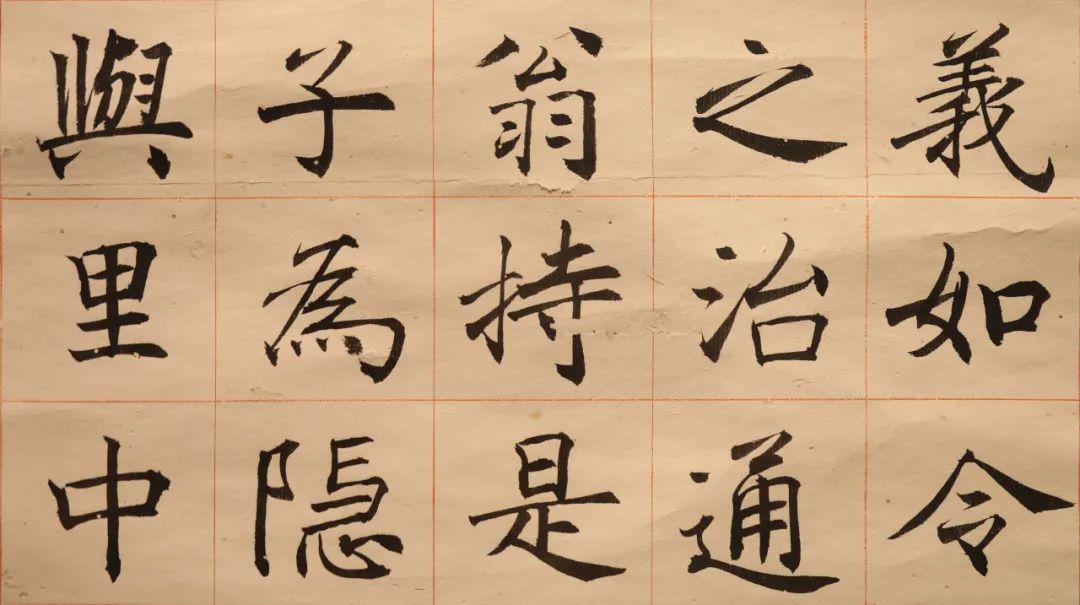 義如令
之治通
翁持是
子為隱
與里中